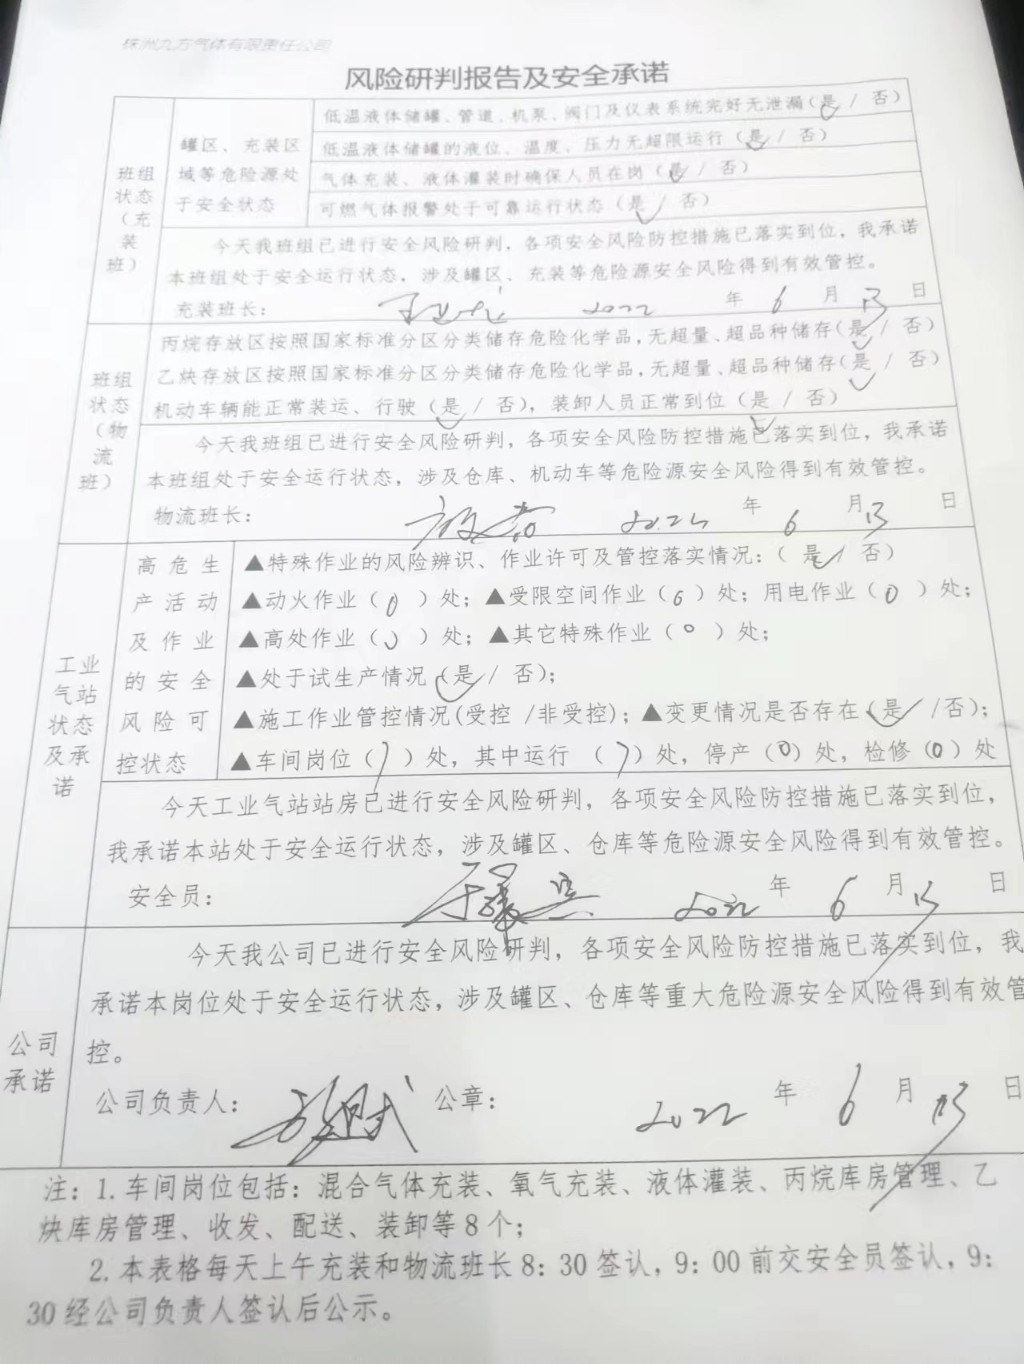 株洲九方气体有限责任公司
风险研判报告及安全承诺
班组状态（充装班）
罐区、充装区域等危险源处于安全状态
低温液体储罐、管道、机泵、阀门及仪表系统完好无泄漏（是 / 否）
低温液体储罐的液位、温度、压力无超限运行（是 / 否）
气体充装、液体灌装时确保人员在岗（是 / 否）
可燃气体报警处于可靠运行状态（是 / 否）
今天我班组已进行安全风险研判，各项安全风险防控措施已落实到位，我承诺
本班组处于安全运行状态，涉及罐区、充装等危险源安全风险得到有效管控。
充装班长： 2022 年 6 月 13 日
班组状态（物流班）
丙烷存放区按照国家标准分区分类储存危险化学品，无超量、超品种储存（是 / 否）
乙炔存放区按照国家标准分区分类储存危险化学品，无超量、超品种储存（是 / 否）
机动车辆能正常装运、行驶（是 / 否），装卸人员正常到位（是 / 否）
今天我班组已进行安全风险研判，各项安全风险防控措施已落实到位，我承诺
本班组处于安全运行状态，涉及仓库、机动车等危险源安全风险得到有效管控。
物流班长： 2022 年 6 月 13 日
工业气站状态及承诺
高危生产活动及作业的安全风险可控状态
▲特殊作业的风险辨识、作业许可及管控落实情况：（ 是 / 否）
▲动火作业（ 0 ）处；▲受限空间作业（ 0 ）处；用电作业（ 0 ）处；
▲高处作业（ 0 ）处；▲其它特殊作业（ 0 ）处；
▲处于试生产情况（是 / 否）；
▲施工作业管控情况(受控 /非受控)；▲变更情况是否存在（是 /否）；
▲车间岗位（ ）处，其中运行 （ ）处，停产（0）处，检修（0）处
今天工业气站站房已进行安全风险研判，各项安全风险防控措施已落实到位，
我承诺本站处于安全运行状态，涉及罐区、仓库等危险源安全风险得到有效管控。
安全员： 2022 年 6 月 13 日
公司承诺
今天我公司已进行安全风险研判，各项安全风险防控措施已落实到位，我
承诺本岗位处于安全运行状态，涉及罐区、仓库等重大危险源安全风险得到有效管
控。
公司负责人： 公章： 2022 年 6 月 13 日
注：1.车间岗位包括：混合气体充装、氧气充装、液体灌装、丙烷库房管理、乙
炔库房管理、收发、配送、装卸等8个；
2.本表格每天上午充装和物流班长8：30签认，9：00前交安全员签认，9：
30经公司负责人签认后公示。